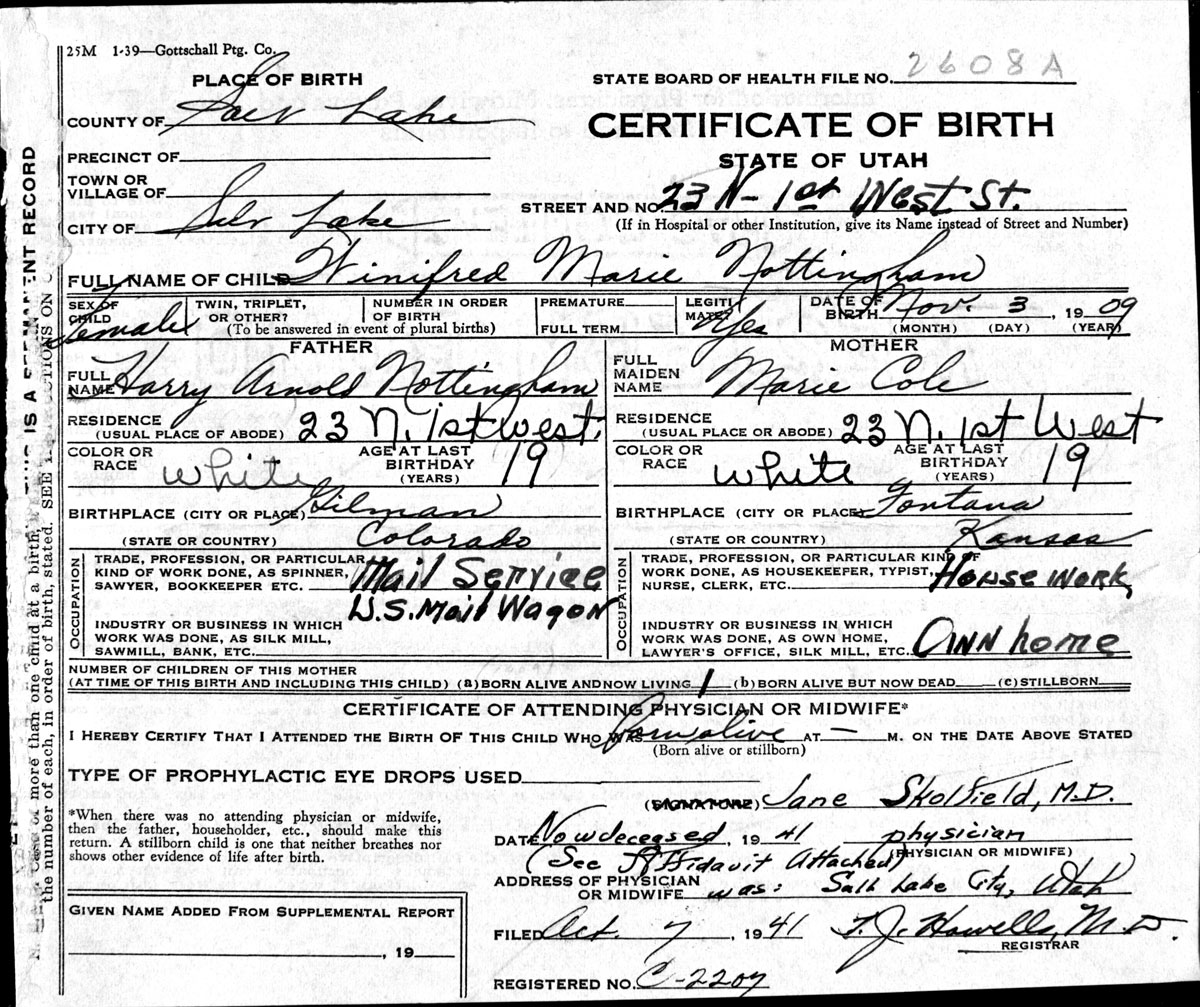 25M 1-39—Gottschall Ptg. Co.
PLACE OF BIRTH
STATE BOARD OF HEALTH FILE NO. 2608A
COUNTY OF Salt Lake
CERTIFICATE OF BIRTH
STATE OF UTAH
PRECINCT OF
TOWN OR
VILLAGE OF
CITY OF Salt Lake
STREET AND NO. 23 N - 1st West St.
(If in Hospital or other Institution, give its Name instead of Street and Number)
FULL NAME OF CHILD Winifred Marie Nottingham
SEX OF
CHILD Female
TWIN, TRIPLET,
OR OTHER?
NUMBER IN ORDER
OF BIRTH
(To be answered in event of plural births)
PREMATURE
FULL TERM
LEGITI
MATE? Yes
DATE OF
BIRTH Nov. 3, 1909
(MONTH) (DAY) (YEAR)
FATHER
FULL
NAME Harry Arnold Nottingham
RESIDENCE
(USUAL PLACE OF ABODE) 23 N. 1st West.
COLOR OR
RACE white
AGE AT LAST
BIRTHDAY 19
(YEARS)
BIRTHPLACE (CITY OR PLACE) Gilman
(STATE OR COUNTRY) Colorado
OCCUPATION
TRADE, PROFESSION, OR PARTICULAR
KIND OF WORK DONE, AS SPINNER,
SAWYER, BOOKKEEPER ETC. Mail Service
U.S. Mail Wagon
INDUSTRY OR BUSINESS IN WHICH
WORK WAS DONE, AS SILK MILL,
SAWMILL, BANK, ETC.
MOTHER
FULL
MAIDEN
NAME Marie Cole
RESIDENCE
(USUAL PLACE OR ABODE) 23 N. 1st West
COLOR OR
RACE white
AGE AT LAST
BIRTHDAY 19
(YEARS)
BIRTHPLACE (CITY OR PLACE) Fontana
(STATE OR COUNTRY) Kansas
OCCUPATION
TRADE, PROFESSION, OR PARTICULAR KIND OF
WORK DONE, AS HOUSEKEEPER, TYPIST,
NURSE, CLERK, ETC. House work
INDUSTRY OR BUSINESS IN WHICH
WORK WAS DONE, AS OWN HOME,
LAWYER'S OFFICE, SILK MILL, ETC. Own home
NUMBER OF CHILDREN OF THIS MOTHER
(AT TIME OF THIS BIRTH AND INCLUDING THIS CHILD) (a) BORN ALIVE AND NOW LIVING 1 (b) BORN ALIVE BUT NOW DEAD (c) STILLBORN
CERTIFICATE OF ATTENDING PHYSICIAN OR MIDWIFE*
I HEREBY CERTIFY THAT I ATTENDED THE BIRTH OF THIS CHILD WHO WAS Born alive AT — M. ON THE DATE ABOVE STATED
(Born alive or stillborn)
TYPE OF PROPHYLACTIC EYE DROPS USED
*When there was no attending physician or midwife,
then the father, householder, etc., should make this
return. A stillborn child is one that neither breathes nor
shows other evidence of life after birth.
(SIGNATURE) Jane Skolfield, M.D.
DATE Now deceased, 1941 physician
(See Affidavit Attached) (PHYSICIAN OR MIDWIFE)
ADDRESS OF PHYSICIAN
OR MIDWIFE was: Salt Lake City, Utah
GIVEN NAME ADDED FROM SUPPLEMENTAL REPORT
, 19
FILED Oct. 7, 1941 T. J. Howells, M.D.
REGISTRAR
REGISTERED NO. C-2207
THIS IS A PERMANENT RECORD
of more than one child at a birth,
the number of each, in order of birth, stated. SEE INSTRUCTIONS ON